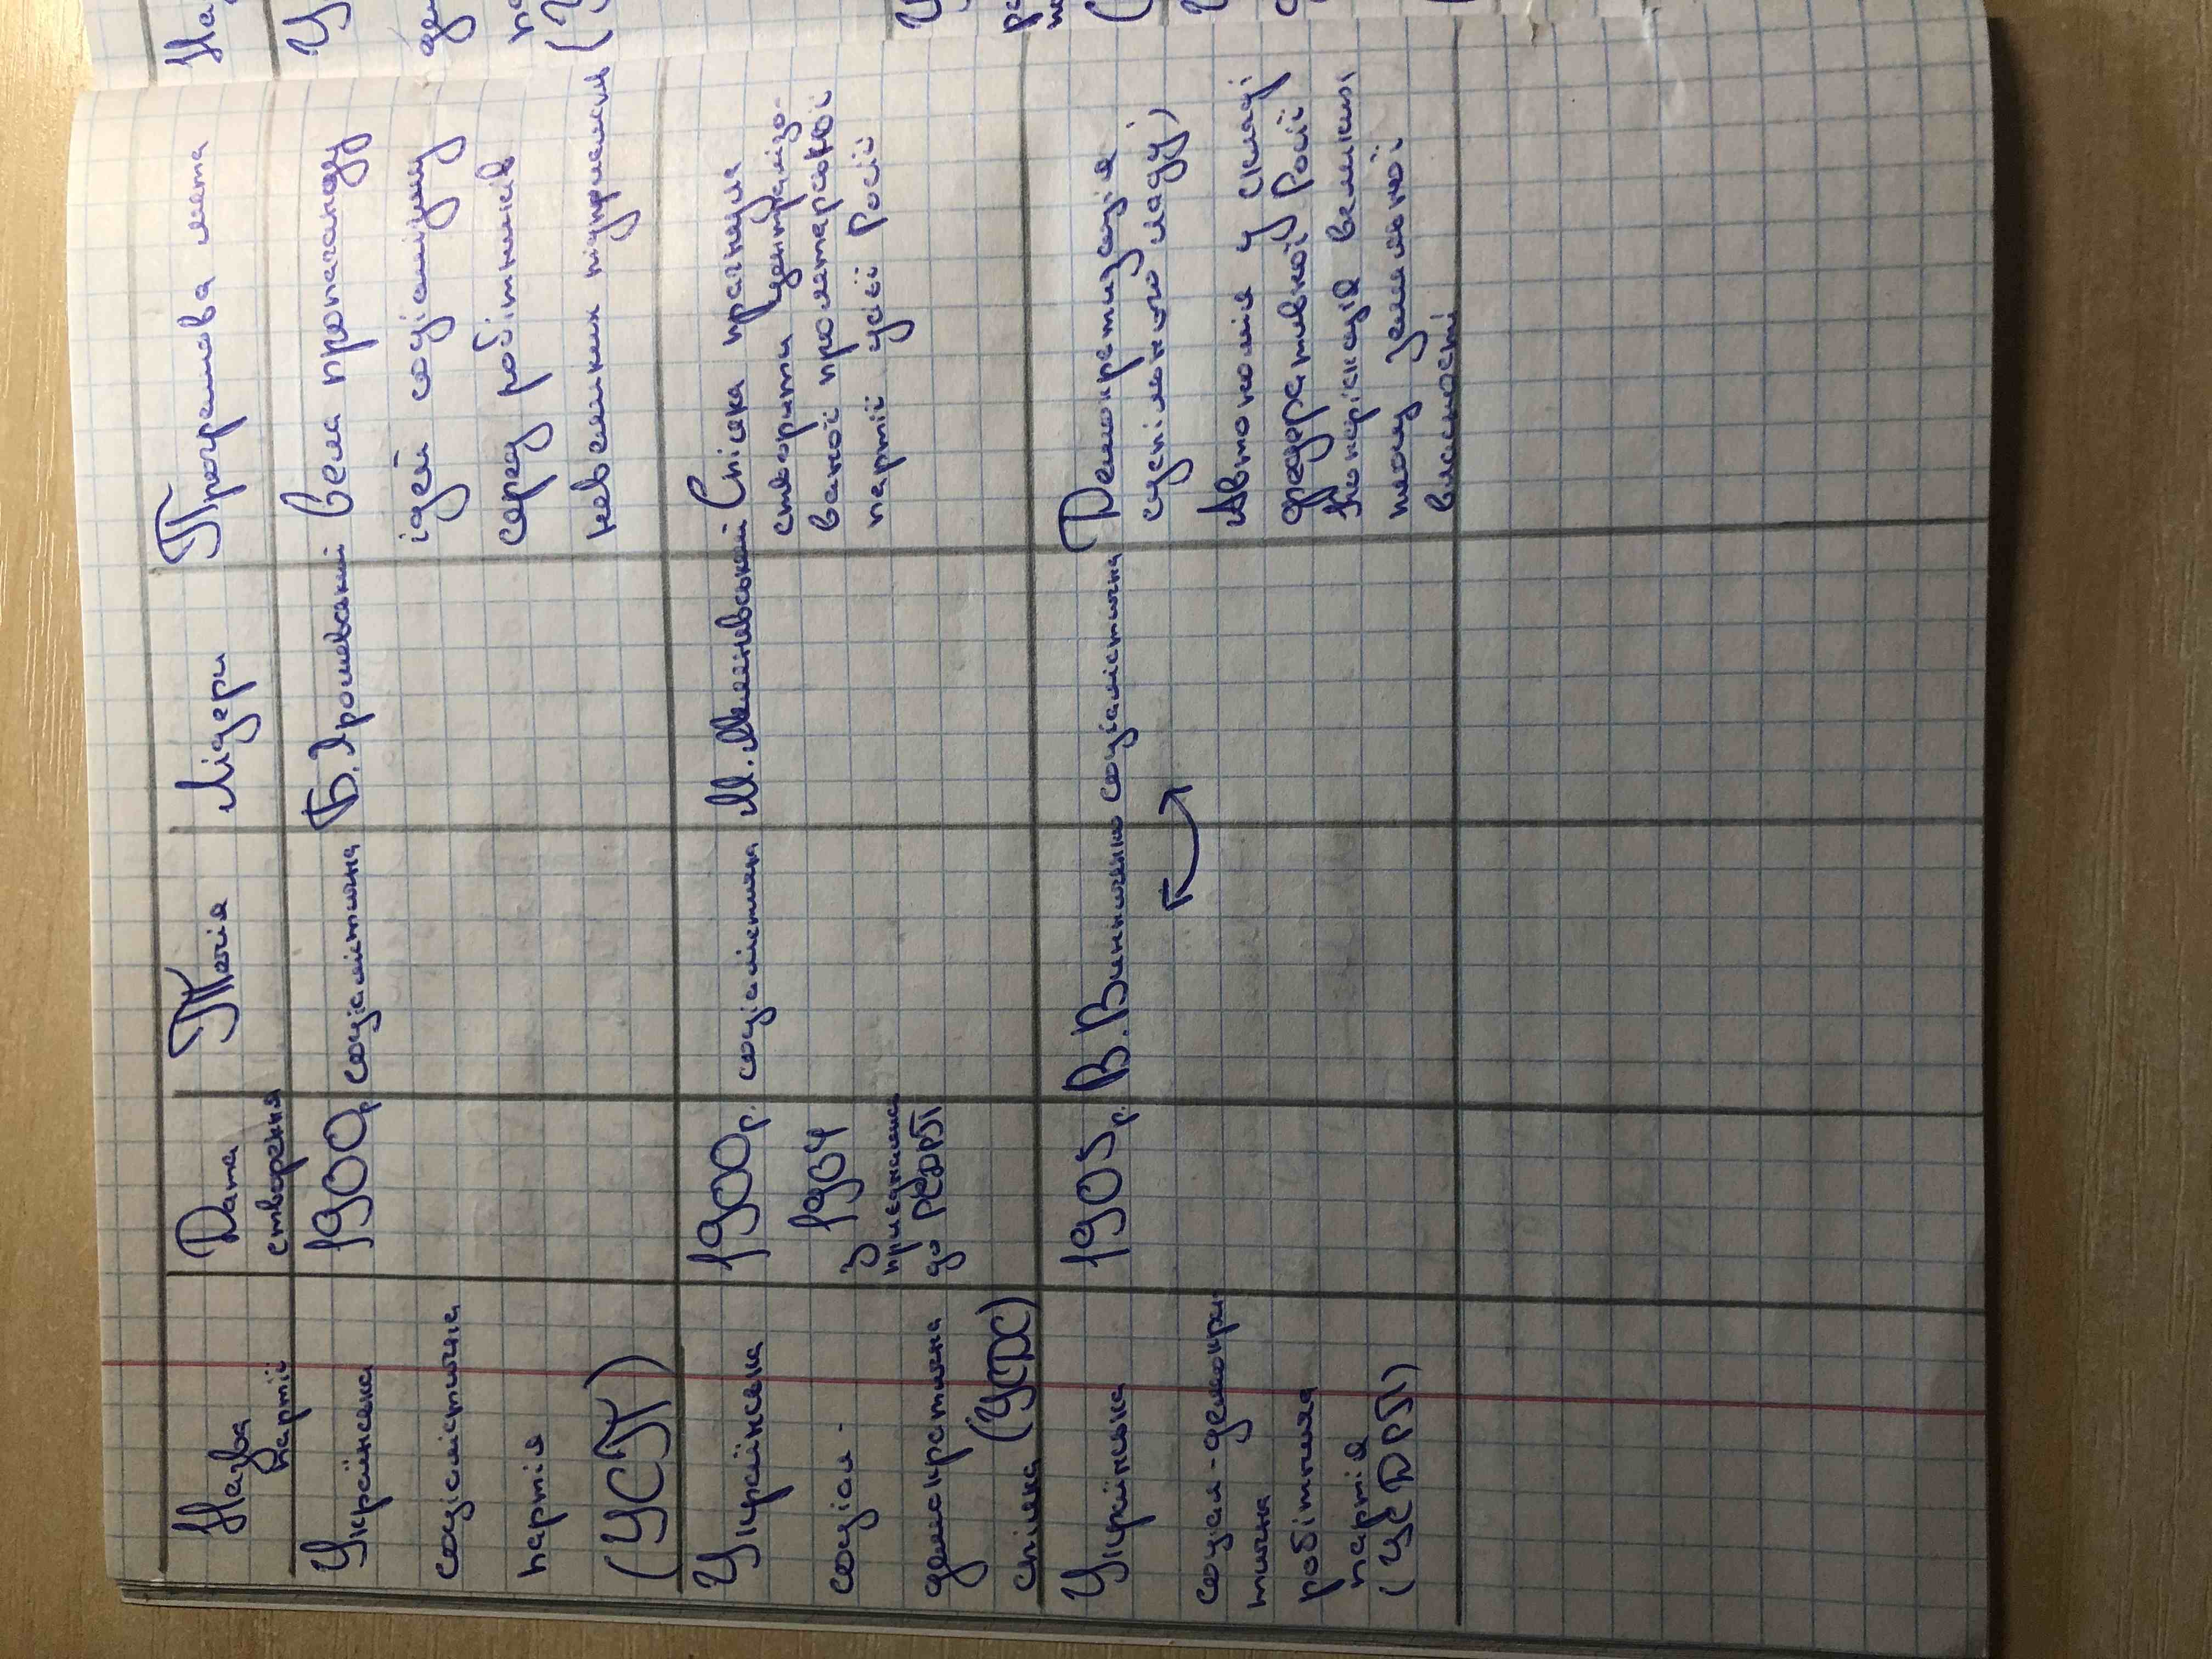 Назва партії
Дата створення
Течія
Лідери
Програмова мета
Українська
соціалістична
партія
(УСП)
1900р
соціалістична
Б. Ярошевський
Вела пропаганду
ідей соціалізму
серед робітників
невеликих підприємств
Українська
соціал-
демократична
спілка (УСДС)
1900р.
З 1904
приєдналась
до РСДРП
соціалістична
М. Меленевський
Спілка прагнула
створити централізо-
ваної пролетарської
партії усієї Росії
Українська
соціал-демокра
тична
робітнича
партія
(УСДРП)
1905р.
В. Винниченко
соціалістична
Демократизація
суспільного ладу;
Автономія у складі
федеративної Росії;
Конфіскація великої
земельної
власності